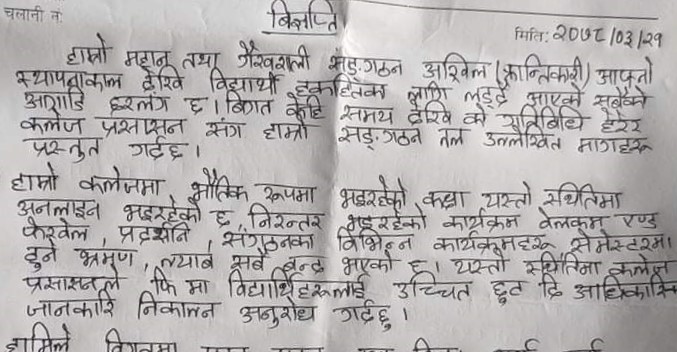 चलानी नं
विज्ञप्ति
मिति: २०७८/०३/२१
हाम्रो महान तथा गौरवशाली सङ्गठन अखिल (क्रान्तिकारी) आफ्नो
स्थापनाकाल देखि विद्यार्थी हकहितका लागि लड्दै आएको सबैको
आगाडि छरलंग छ। बिगत केहि समय देखि को गतिबिधि हेरेर
कलेज प्रसासन संग हाम्रो सङ्गठन तल उल्लेखित मागहरू
प्रस्तुत गर्दछ।
हाम्रो कलेजमा भौतिक रूपमा भइरहेको कक्षा यस्तो स्थितिमा
अनलाइन भइरहेको छ, निरन्तर भइरहेको कार्यक्रम वेलकम एण्ड
फेरवेल, प्रदर्शनि, संगठनका विभिन्न कार्यक्रमहरू सेमेस्टरमा
हुने भ्रमण, ल्याब सबै बन्द भएको छ। यस्तो स्थितिमा कलेज
प्रसासनले फि मा विद्यार्थिहरूलाई उच्चित छुट दि आधिकारिक
जानकारि निकाल्न अनुरोध गर्दछु।
हामिले विगतमा